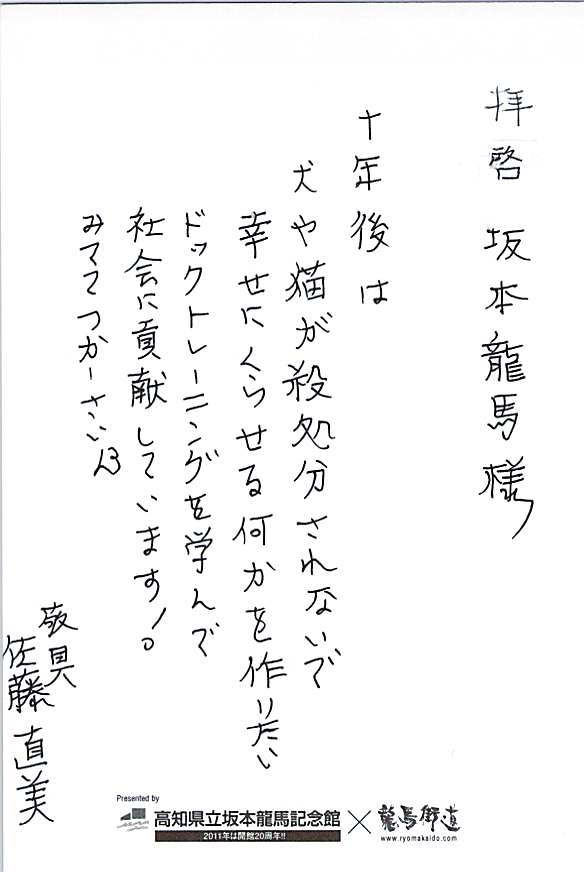 拝啓 坂本龍馬様
十年後は
犬や猫が殺処分されないで
幸せにくらせる何かを作りたい
ドックトレーニングを学んで
社会に貢献しています!。
みててつかーさい
敬具
佐藤直美
Presented by
高知県立坂本龍馬記念館 × 龍馬街道
2011年は開館20周年!!
www.ryomakaido.com